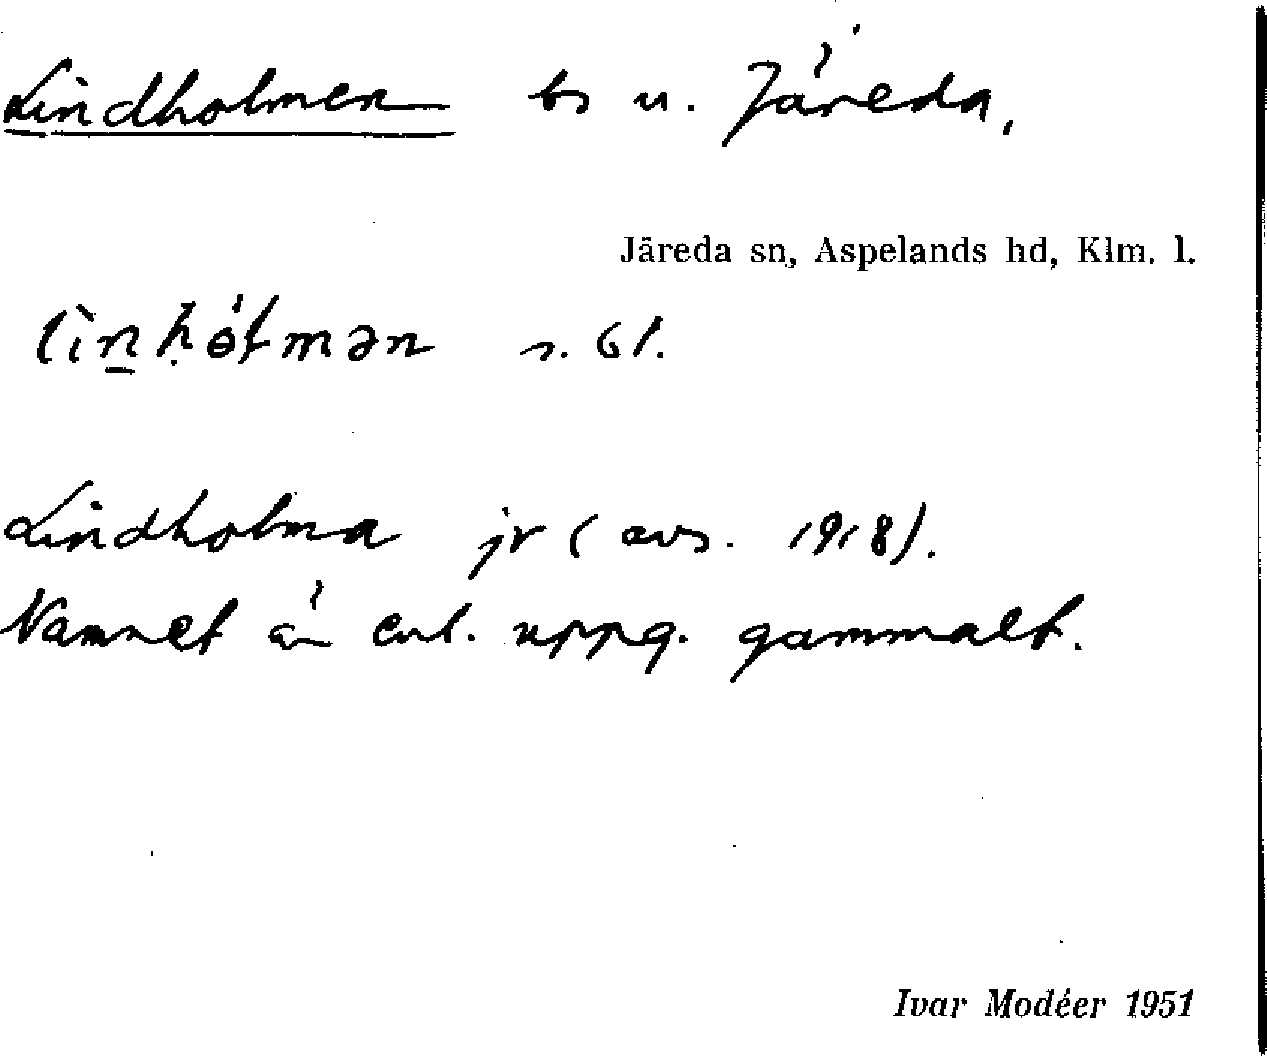 Lindholmen bs u. Järeda,
Järeda sn, Aspelands hd, Klm. l.
lìn̠ḥɵ́ɫmən s. 61.
Lindholma jr (avs. 1918).
Namnet är enl. uppg. gammalt.
Ivar Modéer 1951